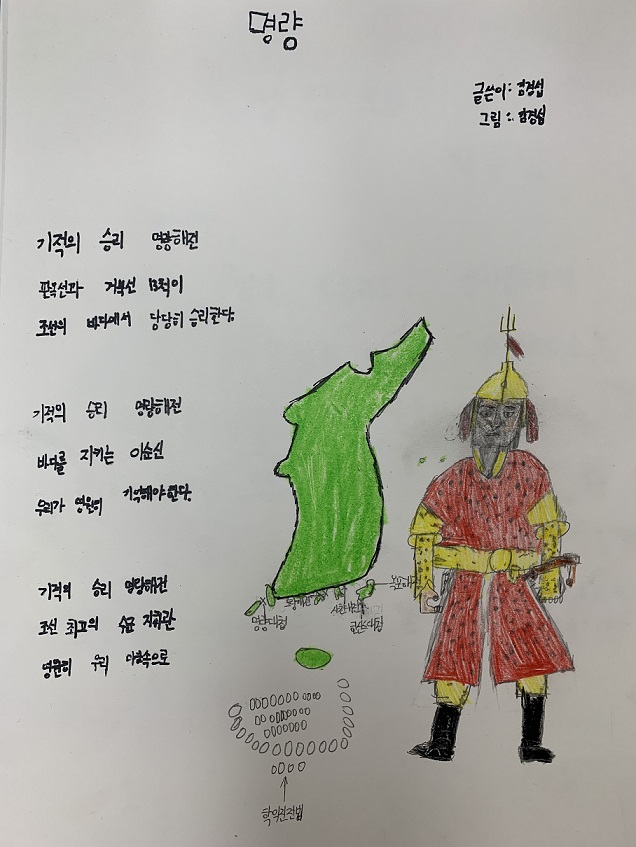 명량
글쓴이: 김경섭
그림: 김경섭
기적의 승리 명량해전
판옥선과 거북선 13척이
조선의 바다에서 당당히 승리한다.
기적의 승리 명량해전
바다를 지키는 이순신
우리가 영원히 기억해야한다.
기적의 승리 명량해전
조선 최고의 수군 지휘관
영원히 우리 마음속으로
옥포해전
명량대첩
한산도대첩
학익진전법